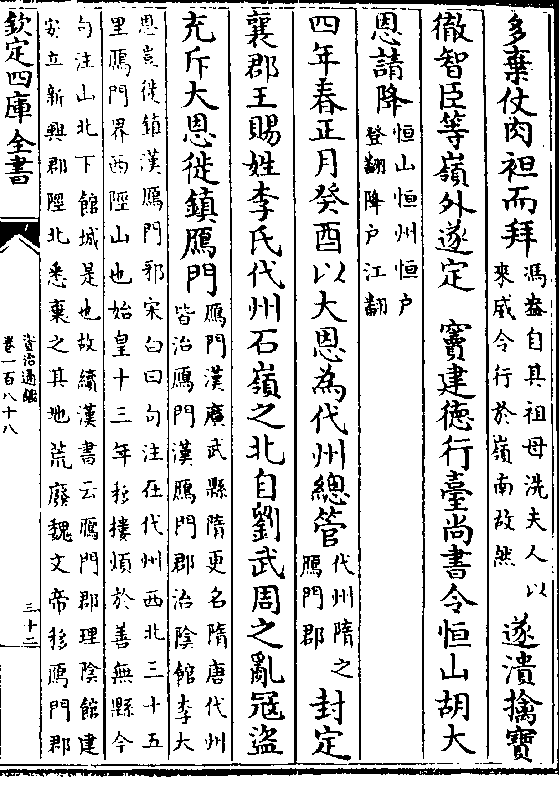 多棄仗肉袒而拜馮盎自其祖母洗夫人以
來威令行於嶺南故然遂潰擒寶
徹智臣等嶺外遂定　竇建徳行臺尚書令恒山胡大
恩請降恒山恒州恒户
登翻降户江翻
四年春正月癸酉以大恩為代州總管代州隋之
鴈門郡封定
襄郡王賜姓李氏代州石嶺之北自劉武周之亂寇盜
充斥大恩徙鎮鴈門鴈門漢廣武縣隋更名隋唐代州
皆治鴈門漢鴈門郡治陰館李大
恩豈徙鎮漢鴈門邪宋白曰句注在代州西北三十五
里鴈門界西陘山也始皇十三年移樓煩於善無縣今
句注山北下館城是也故續漢書云鴈門郡理陰館建
安立新興郡陘北悉棄之其地荒廢魏文帝移鴈門郡
欽定四庫全書
資治通鑑
卷一百八十八
三十二